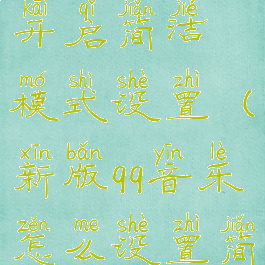 kāi qǐ jiǎn jié
开启简洁
mó shì shè zhì
模式设置(
xīn bǎn yīn lè
新版qq音乐
zěn me shè zhì jiǎn
怎么设置简